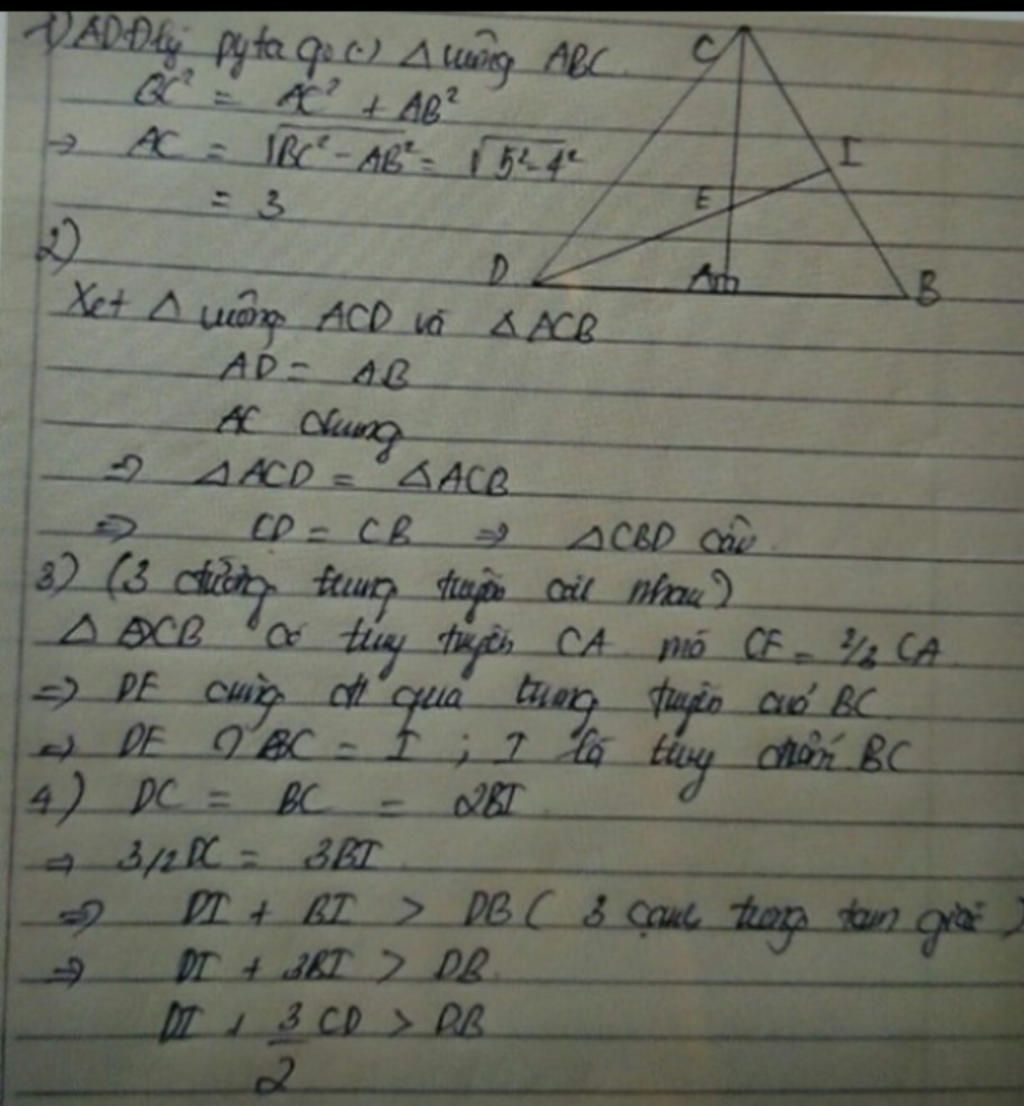 1) AD Đlý pytago (.) Δ vuông ABC.
BC² = AC² + AB²
→ AC = √BC² - AB² = √5² - 4²
= 3
2)
Xét Δ vuông ACD và Δ ACB
AD = AB
AC chung
=> Δ ACD = Δ ACB
=> CD = CB => Δ CBD cân
3) (3 đường trung tuyến cắt nhau)
Δ DCB có tuyến CA mà CE = 2/3 CA
=> DE cũng đi qua trung tuyến BC
=> DE ∩ BC = I ; I là điểm BC
4) DC = BC = 2BI
=> 3/2 DC = 3BI
=> DI + BI > DB ( 3 cạnh trong tam giác )
=> DI + 3BI > DB
DI + 3/2 CD > DB
C
I
E
D
A
B